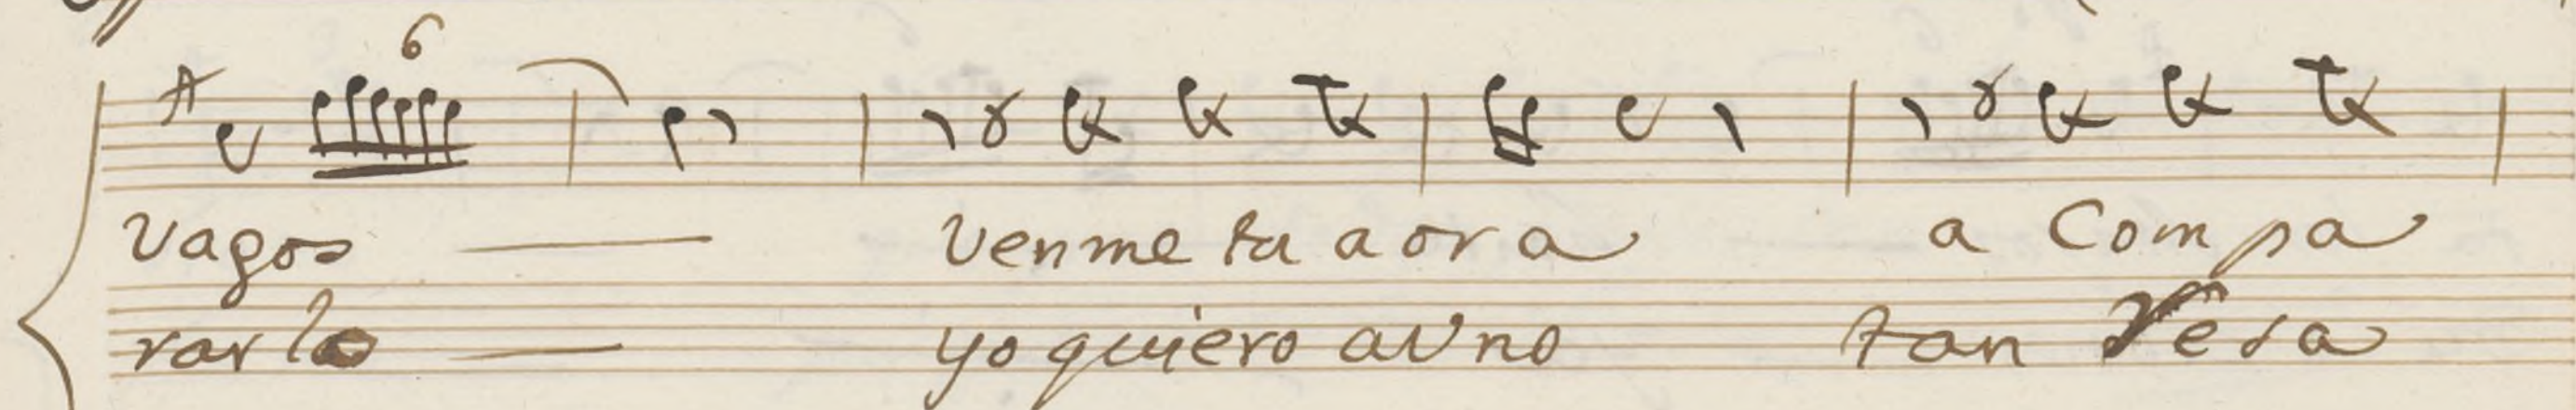 6
Vagos
Venme tu aora
a Compa
rarlo
yo quiero aUno
tan